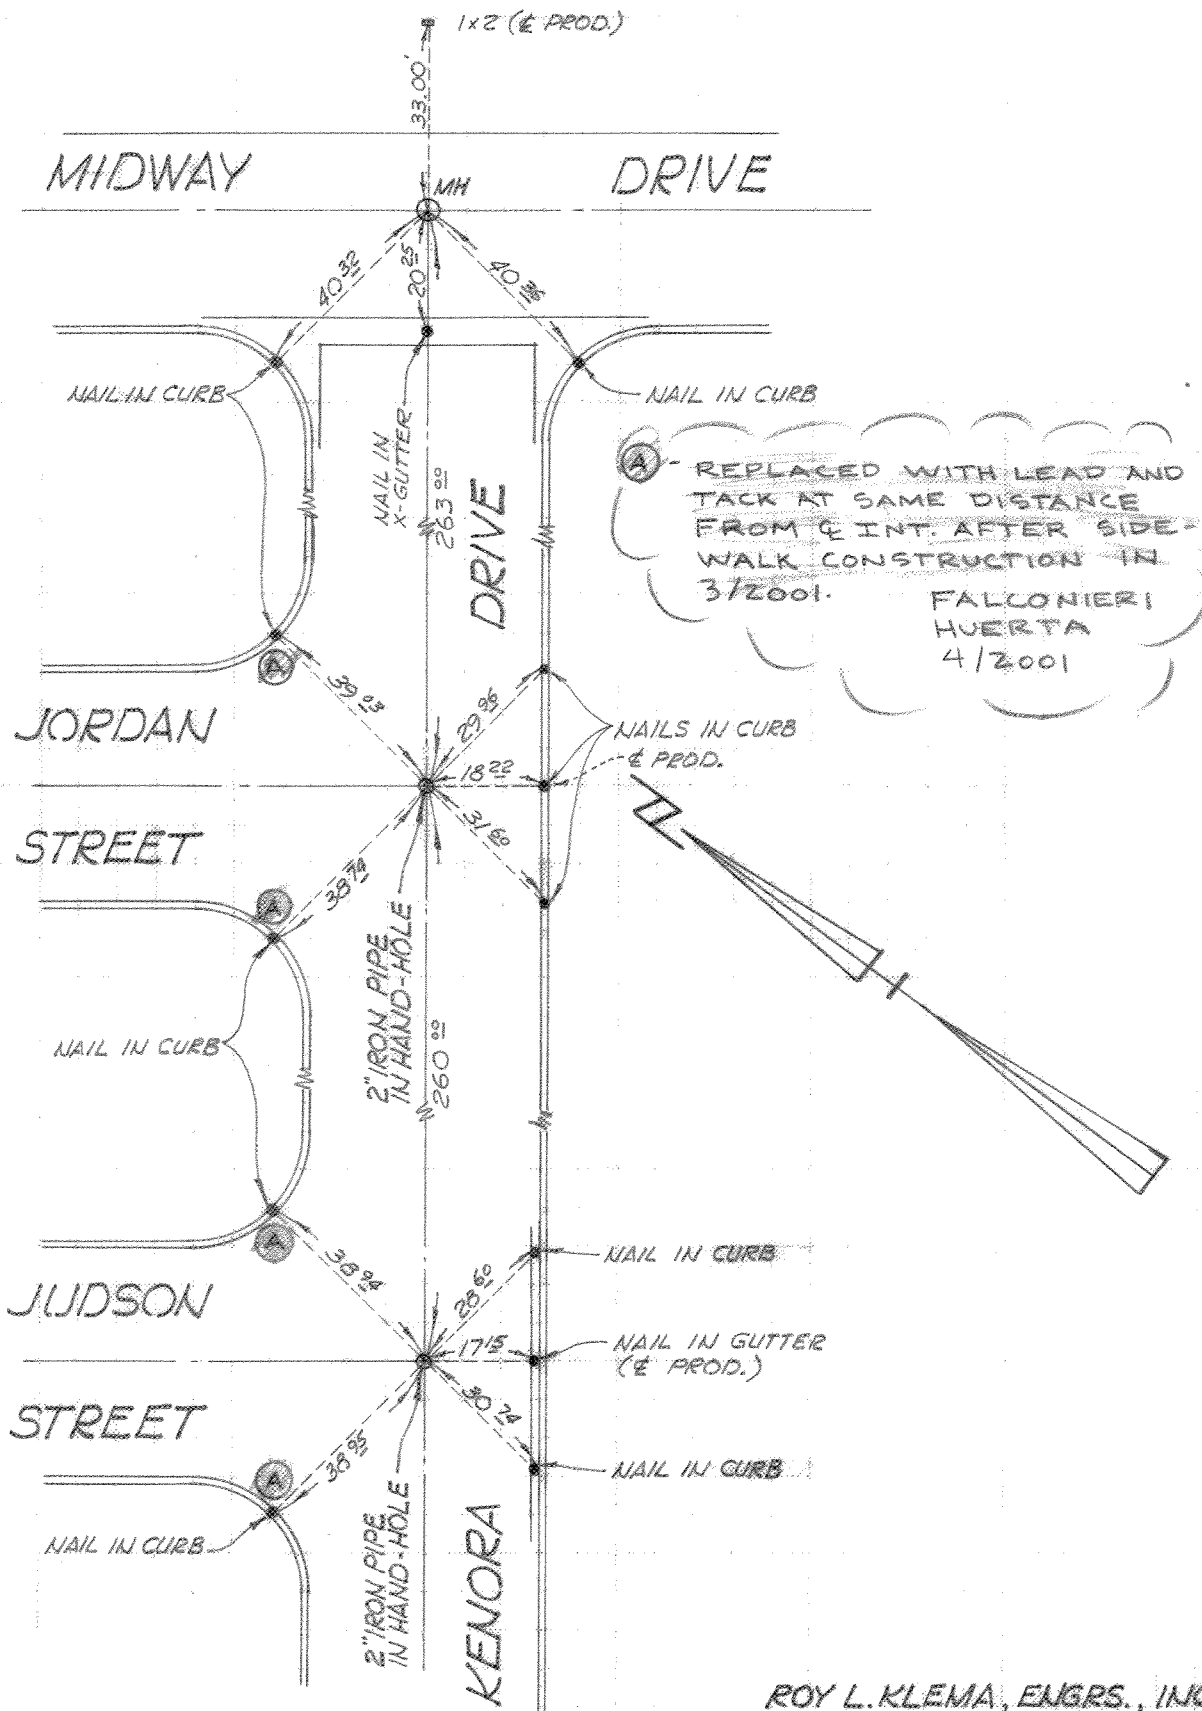 1x2 (℄ PROD.)
33.00'
MIDWAY DRIVE
MH
40 32
20 25
40 36
NAIL IN CURB
NAIL IN CURB
NAIL IN
X-GUTTER
263 00
DRIVE
A - REPLACED WITH LEAD AND
TACK AT SAME DISTANCE
FROM ℄ INT. AFTER SIDE-
WALK CONSTRUCTION IN
3/2001.
FALCONIERI
HUERTA
4/2001
A
39 03
29 96
JORDAN
NAILS IN CURB
℄ PROD.
18 22
STREET
31 60
38 74
A
2" IRON PIPE
IN HAND-HOLE
260 00
N
NAIL IN CURB
A
38 94
28 60
NAIL IN CURB
JUDSON
17 15
NAIL IN GUTTER
(℄ PROD.)
STREET
30 74
38 95
A
NAIL IN CURB
NAIL IN CURB
2" IRON PIPE
IN HAND-HOLE
KENORA
ROY L. KLEMA, ENGRS., INC